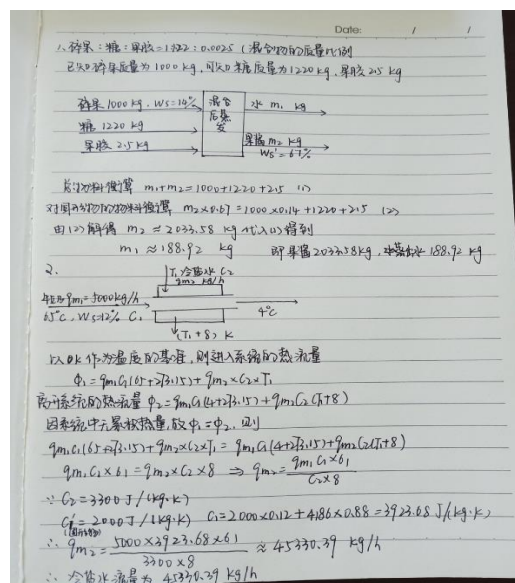 Date: / /
1、碎果:糖:果胶=1:1.22:0.0025 (混合物的质量比例)
已知碎果质量为1000 kg,可知糖质量为1220 kg,果胶2.5 kg
碎果1000 kg, Ws=14% 混合后蒸发 水 m₁ kg
糖 1220 kg
果胶 2.5 kg 果酱 m₂ kg
Ws'=67%
总物料衡算 m₁+m₂=1000+1220+2.5 (1)
对固形物的物料衡算 m₂×0.67=1000×0.14+1220+2.5 (2)
由(2)解得 m₂≈2033.58 kg 代入(1)得到
m₁≈188.92 kg 即果酱2033.58kg,蒸出水188.92 kg
2.
T₁ 冷盐水 C₂
qm₂ kg/h
牛奶qm₁=5000kg/h
65℃, Ws=12% C₁ 4℃
(T₁+8) K
以0K作为温度的基准,则进入系统的热流量
Φ₁=qm₁C₁(65+273.15)+qm₂×C₂×T₁
离开系统的热流量 Φ₂=qm₁C₁(4+273.15)+qm₂C₂(T₁+8)
因系统中无累积热量,故Φ₁=Φ₂,则
qm₁C₁(65+273.15)+qm₂×C₂×T₁=qm₁C₁(4+273.15)+qm₂C₂(T₁+8)
qm₁C₁×61=qm₂×C₂×8 ⇒ qm₂=qm₁C₁×61/C₂×8
∵ C₂=3300J/(kg·K)
C₁'=2000J/(kg·K) C₁=2000×0.12+4186×0.88=3923.68 J/(kg·K)
(固形物)
∴ qm₂=5000×3923.68×61/3300×8≈45330.39 kg/h
∴ 冷盐水流量为 45330.39 kg/h